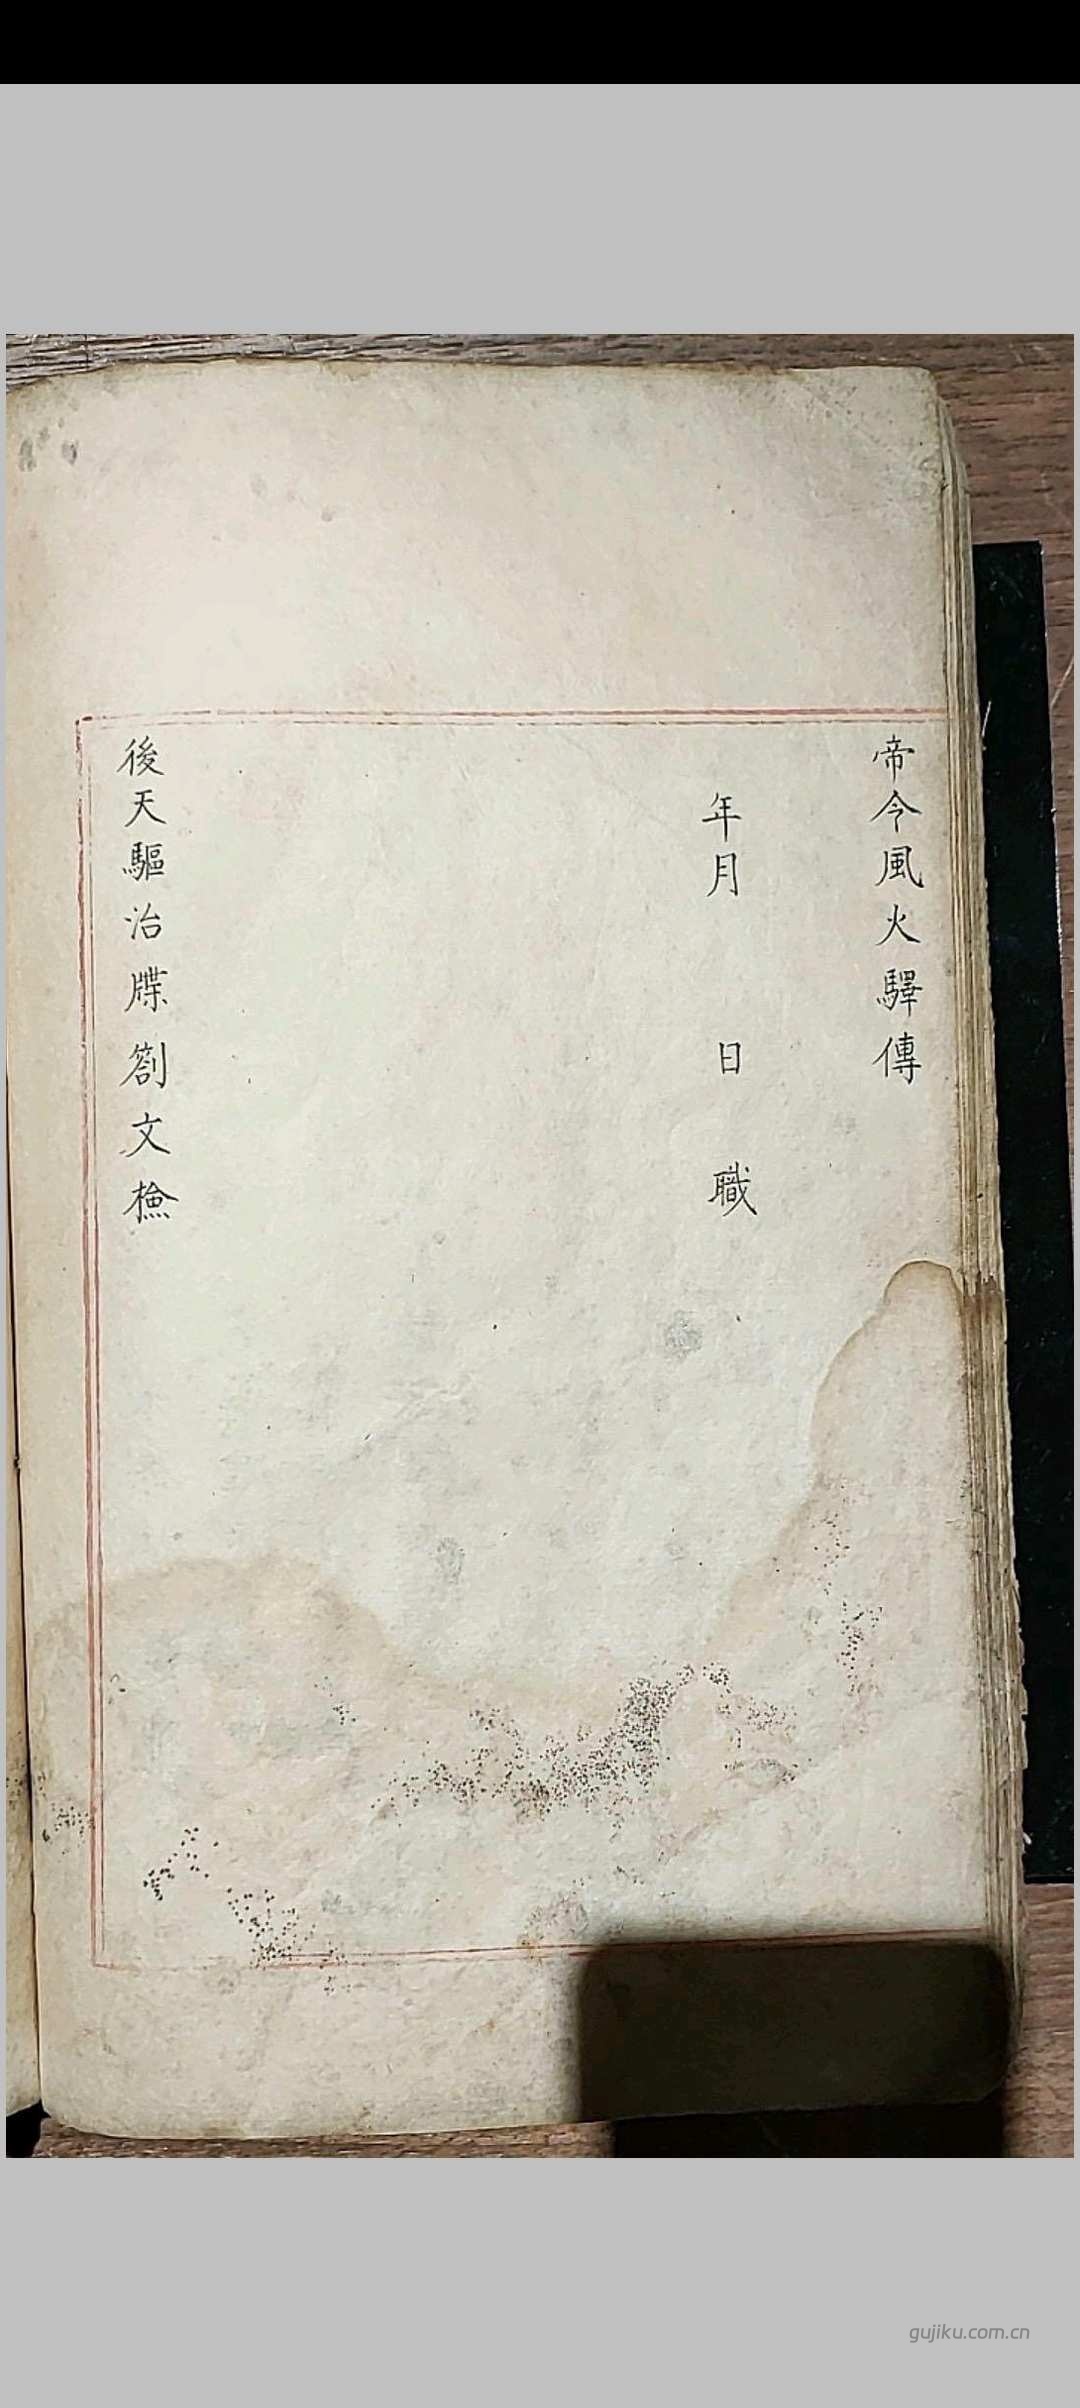 帝令風火驛傳
年月 日 職
後天驅治牒劄文檢
gujiku.com.cn